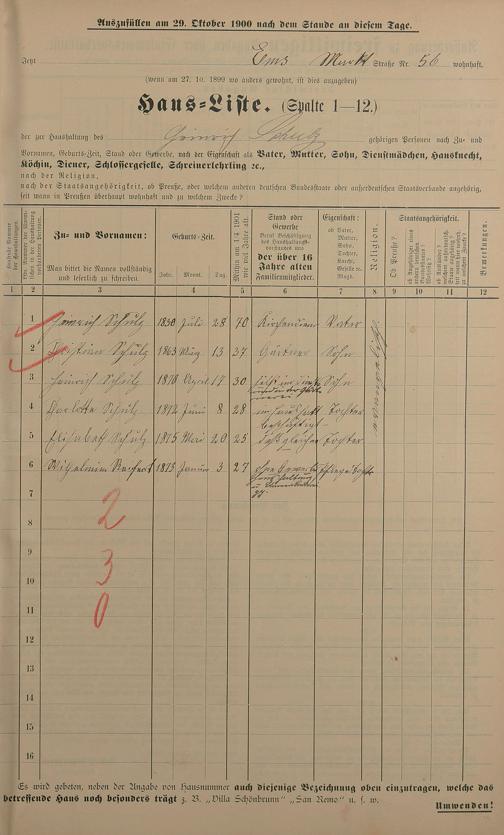 Auszufüllen am 29. Oktober 1900 nach dem Stande an diesem Tage.
Jetzt Ems Markt Straße Nr. 56 wohnhaft.
(wenn am 27. 10. 1899 wo anders gewohnt, ist dies anzugeben)
Haus=Liste. (Spalte 1—12.)
der zur Haushaltung des Heinrich Schulz gehörigen Personen nach Zu- und
Vornamen, Geburts-Zeit, Stand oder Gewerbe, nach der Eigenschaft als Vater, Mutter, Sohn, Dienstmädchen, Hausknecht,
Köchin, Diener, Schlossergeselle, Schreinerlehrling ꝛc.,
nach der Religion,
nach der Staatsangehörigkeit, ob Preuße, oder welchem anderen deutschen Bundesstaate oder außerdeutschen Staatsverbande angehörig,
seit wann in Preußen überhaupt wohnhaft und zu welchem Zwecke?
Zu- und Vornamen:
Man bittet die Namen vollständig und leserlich zu schreiben.
Geburts-Zeit.
Jahr. Monat. Tag.
Mithin am 1/4 1901 wie viel Jahre alt.
Stand oder Gewerbe
der über 16 Jahre alten
Familienmitglieder.
Eigenschaft:
ob Vater, Mutter, Sohn, Tochter, Knecht, Geselle ꝛc. Magd.
Religion.
Staatsangehörigkeit.
Ob Preuße?
Bemerkungen.
1 2 3 4 5 6 7 8 9 10 11 12
1 Heinrich Schulz 1830 Juli 28 70 Kirchendiener Vater
2 Christian Schulz 1863 März 13 37 Gärtner Sohn
3 Heinrich Schulz 1870 April 17 30 Sohn
4 Charlotte Schulz 1872 Juni 8 28 im Haushalt beschäftigt Tochter
5 Elisabeth Schulz 1875 Mai 20 25 desgleichen Tochter
6 1873 Januar 3 27 ohne Gewerbe
evangelisch
7
8 2
9
10 3
11 0
12
13
14
15
16
Es wird gebeten, neben der Angabe von Hausnummer auch diejenige Bezeichnung oben einzutragen, welche das
betreffende Haus noch besonders trägt z. B. "Villa Schönbrunn" "San Remo" u. s. w.
Umwenden!